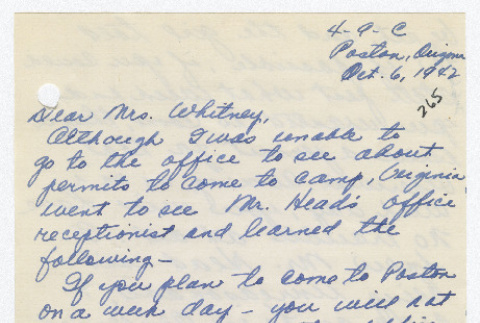 4-9-C
Poston, Arizona
Oct. 6, 1942
265
Dear Mrs. Whitney,
Although I was unable to
go to the office to see about
permits to come to camp, Virginia
went to see Mr. Head's office
receptionist and learned the
following—
If you plan to come to Poston
on a week day — you will not